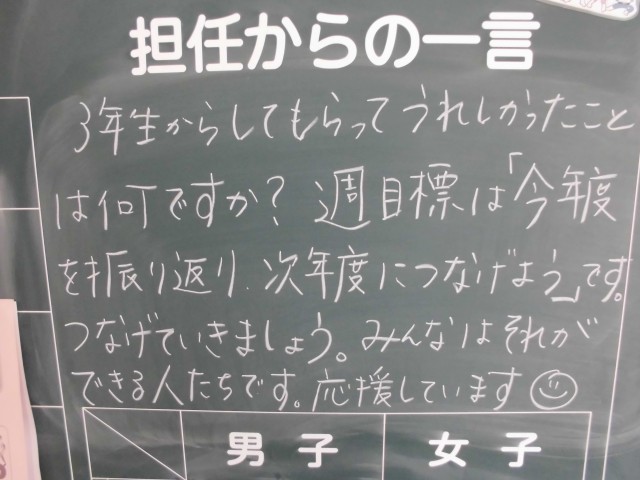 担任からの一言
3年生からしてもらってうれしかったこと
は何ですか？ 週目標は「今年度
を振り返り、次年度につなげよう」です。
つなげていきましょう。みんなはそれが
できる人たちです。応援しています
男子 女子